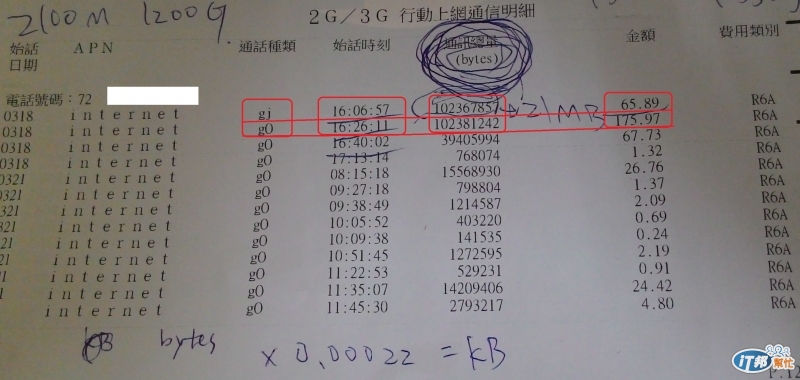 2100M 1200G
2G/3G 行動上網通信明細
始話日期 APN 通話種類 始話時刻 通訊總量(bytes) 金額 費用類別
電話號碼:72
0318 internet gj 16:06:57 102367857 65.89 R6A
→21MB
0318 internet g0 16:26:11 102381242 175.97 R6A
0318 internet g0 16:40:02 39405994 67.73 R6A
0318 internet g0 17:13:14 768074 1.32 R6A
0321 internet g0 08:15:18 15568930 26.76 R6A
0321 internet g0 09:27:18 798804 1.37 R6A
0321 internet g0 09:38:49 1214587 2.09 R6A
321 internet g0 10:05:52 403220 0.69 R6A
321 internet g0 10:09:38 141535 0.24 R6A
321 internet g0 10:51:45 1272595 2.19 R6A
21 internet g0 11:22:53 529231 0.91 R6A
21 internet g0 11:35:07 14209406 24.42 R6A
internet g0 11:45:30 2793217 4.80 R6A
bytes × 0.00022 = kB
iT邦幫忙
P.12